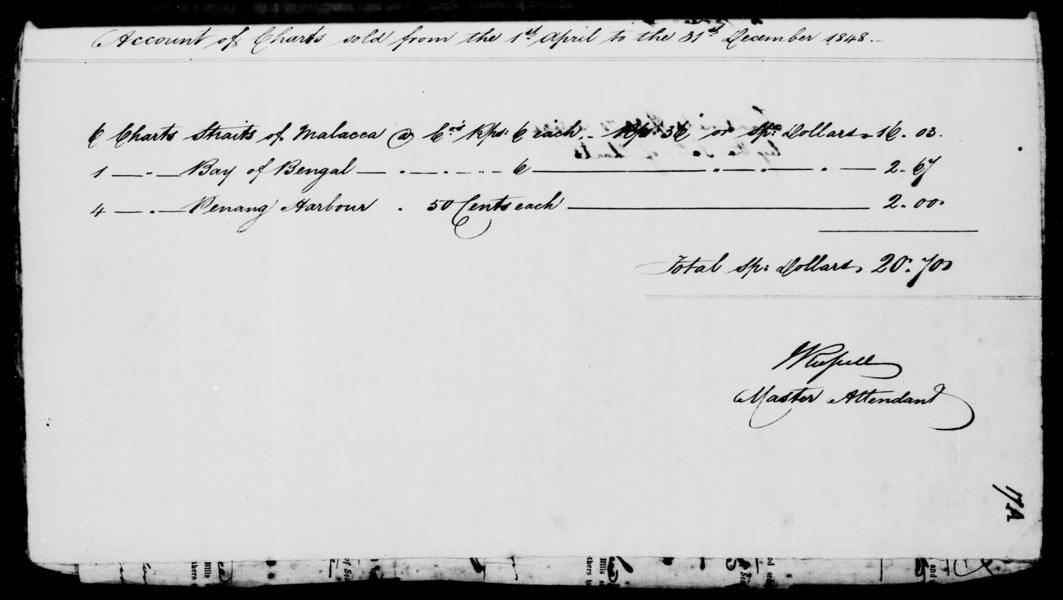 Account of Charts sold from the 1st April to the 31st December 1848.
6 Charts Straits of Malacca @ Co's Rps: 6 each. Rps: 36 or Spa Dollars 16. 03.
1 — " — Bay of Bengal — . — . — . 6 — " — . — 2. 67
4 — " — Penang Harbour . 50 Cents each — 2. 00.
Total Sp: Dollars, 20. 70
Master Attendant
17A